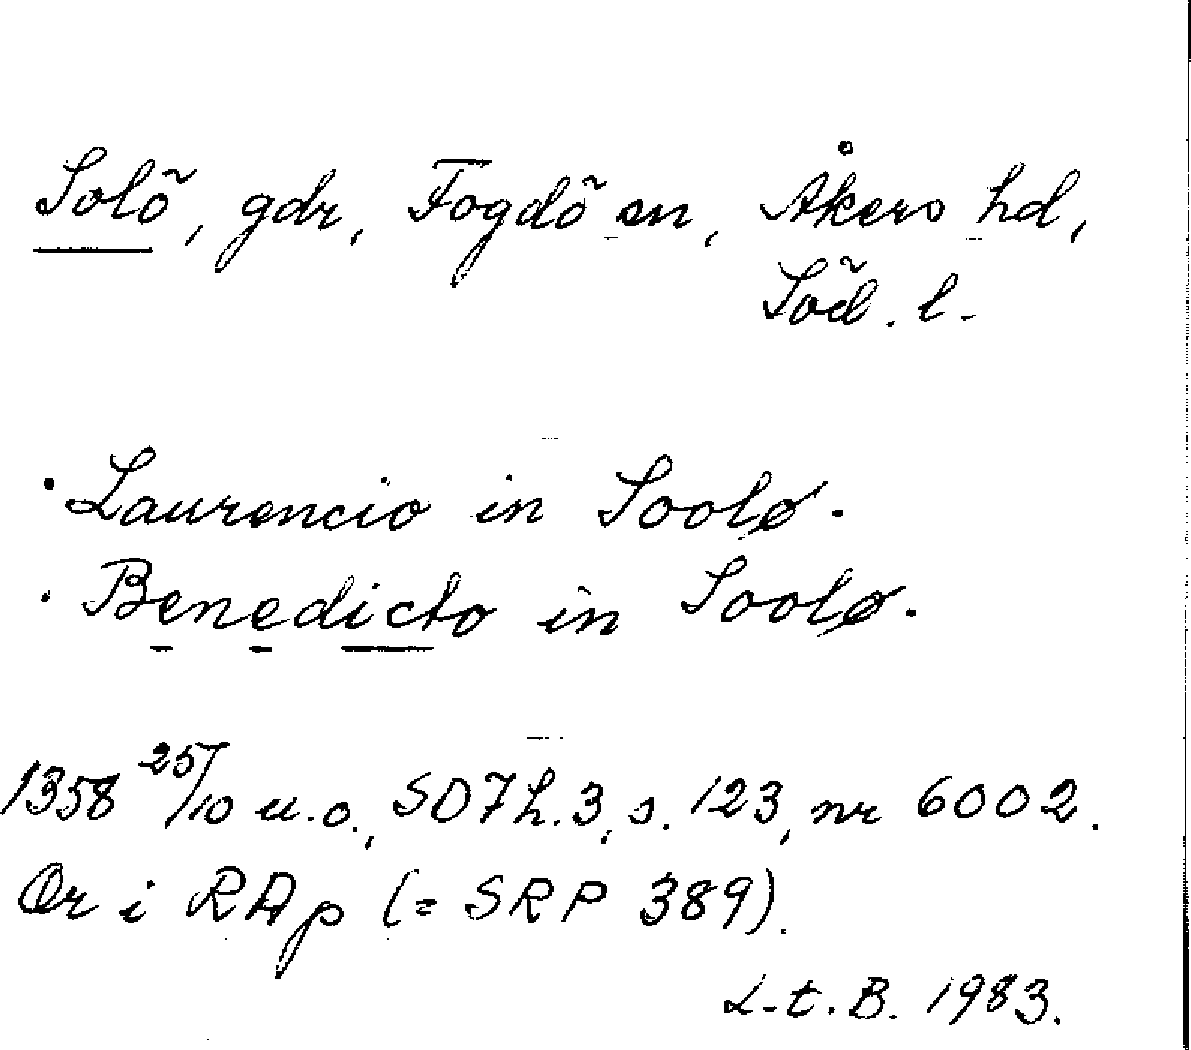 Solö, gdr, Fogdö sn, Åkers hd,
Söd. l.
· Laurencio in Soolø.
· Benedicto in Soolø.
1358 25/10 u.o., SD7h.3, s. 123, nr 6002.
Or i RAp (= SRP 389).
L.t.B. 1983.